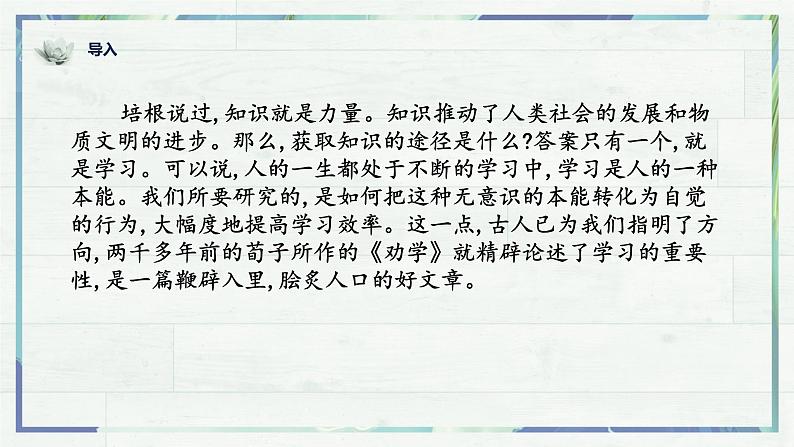 导入
培根说过,知识就是力量。知识推动了人类社会的发展和物
质文明的进步。那么,获取知识的途径是什么?答案只有一个,就
是学习。可以说,人的一生都处于不断的学习中,学习是人的一种
本能。我们所要研究的,是如何把这种无意识的本能转化为自觉
的行为,大幅度地提高学习效率。这一点,古人已为我们指明了方
向,两千多年前的荀子所作的《劝学》就精辟论述了学习的重要
性,是一篇鞭辟入里,脍炙人口的好文章。